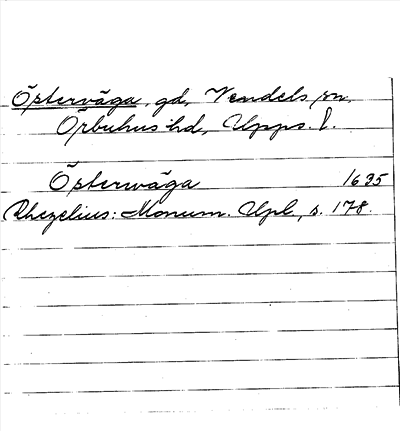 Östervåga, gd, Vendels sn,
Örbyhus hd, Upps. l.
Österwåga 1635
Rhezelius: Monum. Upl, s. 178.